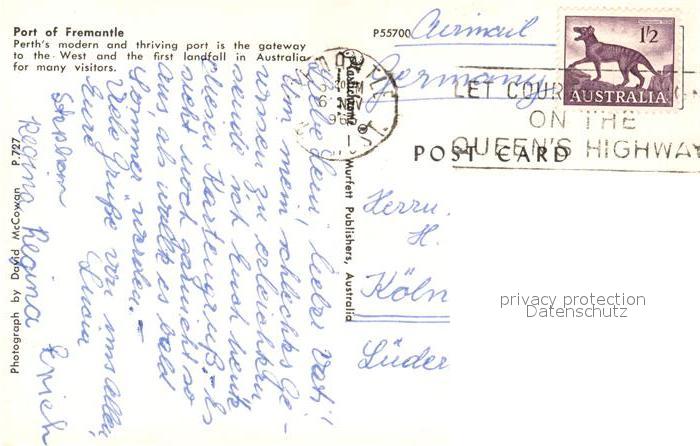 Port of Fremantle
Perth's modern and thriving port is the gateway
to the West and the first landfall in Australia
for many visitors.
P55700
Airmail
Germany
1/2
AUSTRALIA
6 NOV
196
LET COUR
ON THE
QUEEN'S HIGHWAY
POST CARD
Herrn
H.
Köln
Lüder
privacy protection
Datenschutz
Plastichrome ®
Murfett Publishers, Australia
Photograph by David McCowan P.727
lieber Vati!
Um mein schlechtes Ge-
wissen zu erleichtern
sende ich Euch heute
diesen Kartengruß. Es
sieht noch garnicht so
aus, als wollte es bald
Sommer werden. —
Viele Grüße von uns allen,
Eure
Regina Regina Erich